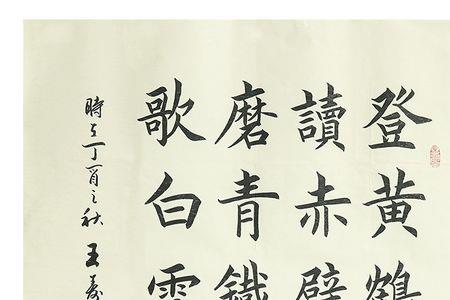 登黃鶴
讀赤壁
磨青鐵
歌白雲
時在丁酉之秋 王